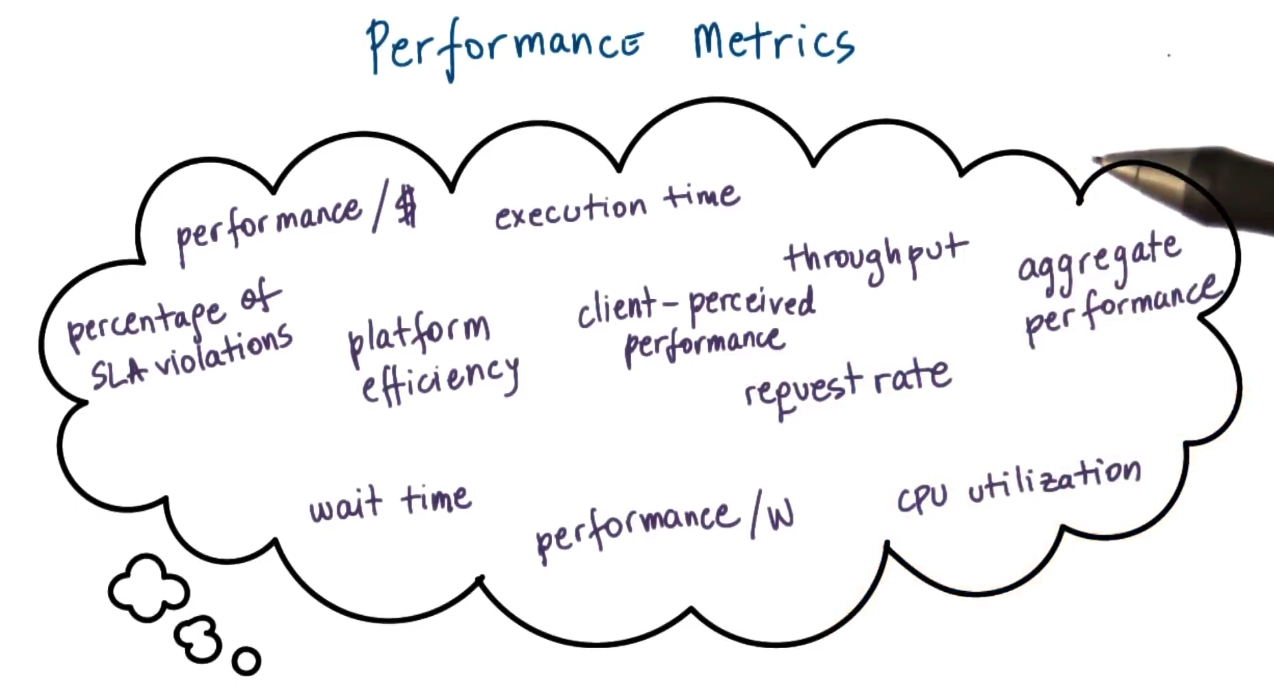 Performance Metrics
performance/$
execution time
throughput
aggregate
performance
percentage of
SLA violations
platform
efficiency
client-perceived
performance
request rate
wait time
performance/W
CPU utilization